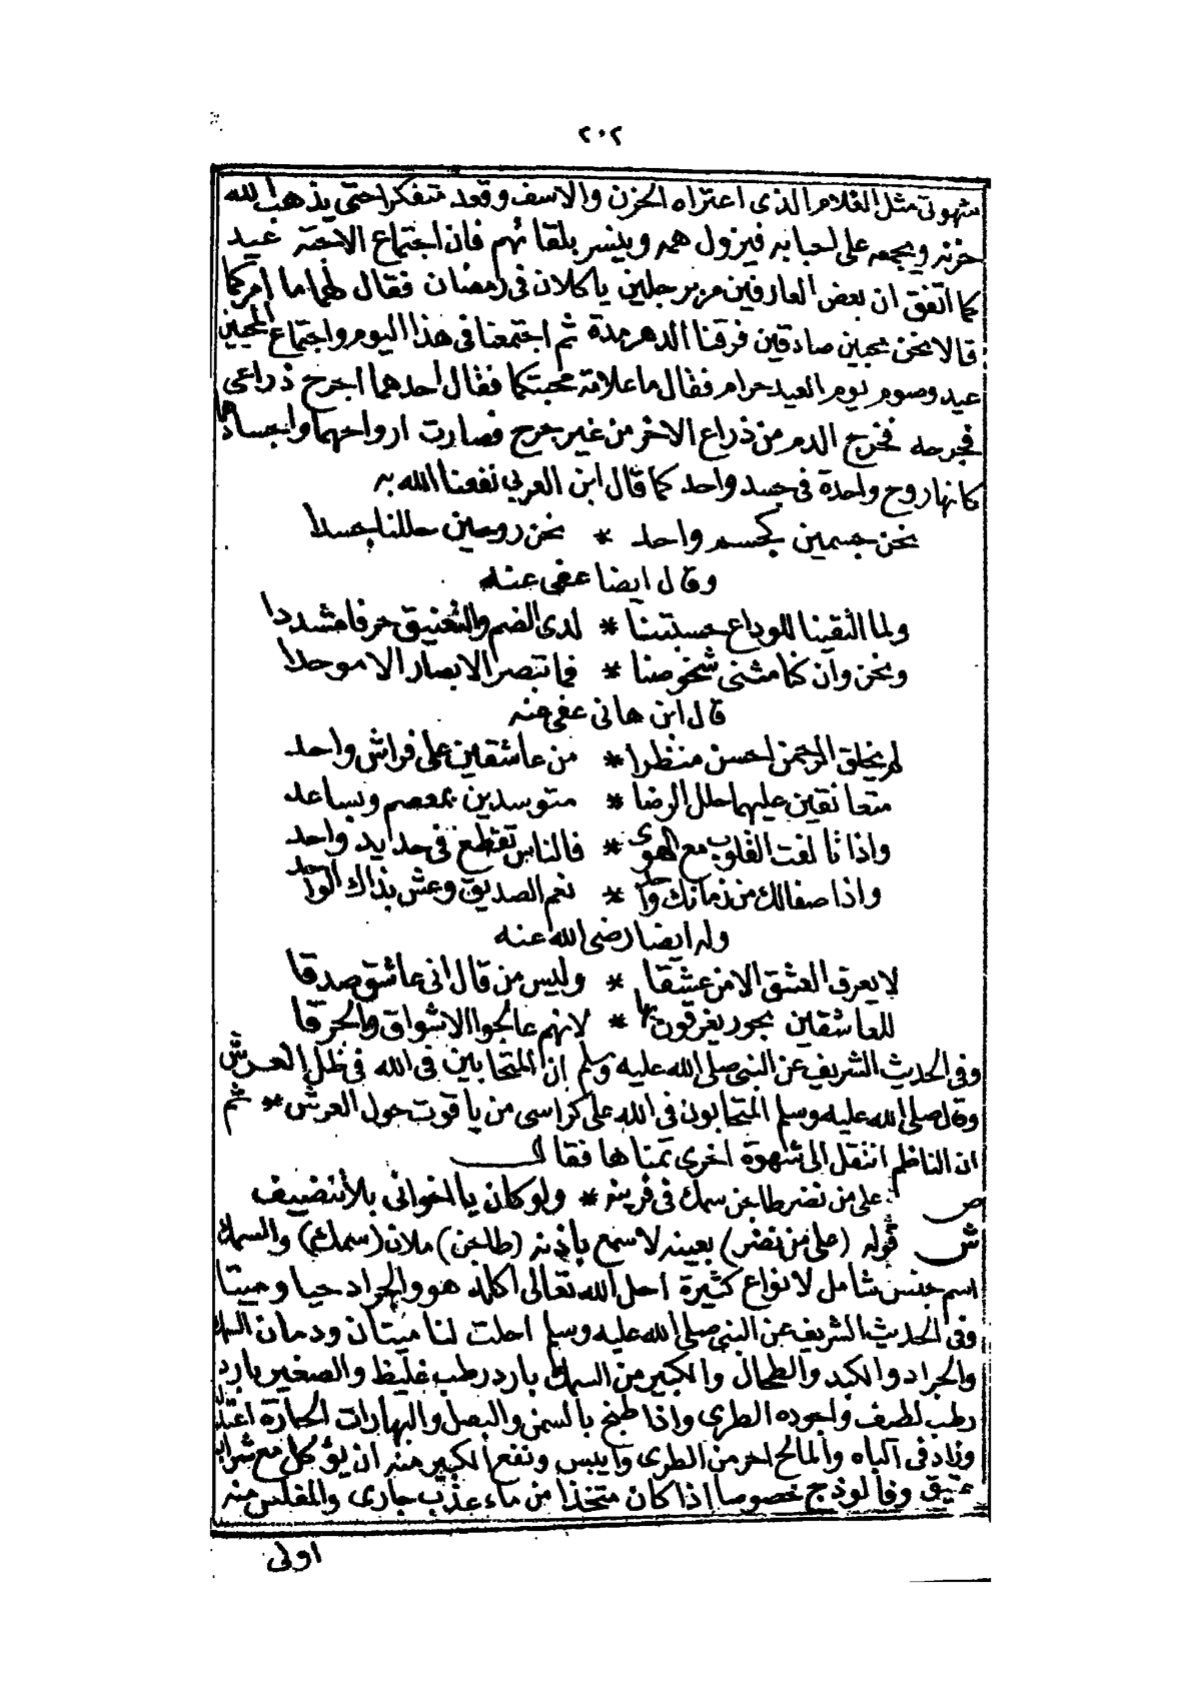 ٢٠٢
شهوتي مثل الغلام الذى اعتراه الحزن والاسف وقعد متفكرا حتى يذهب الله
حزنه ويجمعه على احبابه فيزول همه وينسر بلقائهم فان اجتماع الاحبة عيد
كما اتفق ان بعض العارفين مر برجلين ياكلان فى رمضان فقال لهما ما امركما
قالا نحن محبين صادقين فرقنا الدهر مدة ثم اجتمعنا فى هذا اليوم واجتماع المحبين
عيد وصوم يوم العيد حرام فقال ما علامة محبتكما فقال احدهما اجرح ذراعى
فجرحه فخرج الدم من ذراع الاخر من غير جرح فصارت ارواحهما واجسادهما
كانها روح واحدة فى جسد واحد كما قال ابن العربي نفعنا الله به
نحن جسمين كجسم واحد * نحن روحين حللنا جسدا
وقال ايضا عفى عنه
ولما التقينا للوداع حسبتنا * لدى الضم والتعنيق حرفا مشددا
ونحن وان كنا مثنى شخوصنا * فما تبصر الابصار الا موحدا
قال ابن هانى عفى عنه
لم يخلق الرحمن احسن منظرا * من عاشقين على فراش واحد
متعانقين عليهما حلل الرضا * متوسدين بمعصم وبساعد
واذا تالفت القلوب مع الهوى * فالناس تقطع فى حديد واحد
واذا صفالك من زمانك واحد * نعم الصديق وعش بذاك الواحد
وله ايضا رضى الله عنه
لا يعرف العشق الا من عشقا * وليس من قال انى عاشق صدقا
للعاشقين بحور يغرقون بها * لانهم عالجوا الاشواق والحرقا
وفى الحديث الشريف عن النبى صلى الله عليه وسلم ان المتحابين فى الله فى ظل العرش
وقال صلى الله عليه وسلم المتحابون فى الله على كراسى من ياقوت حول العرش * ثم
ان الناظم انتقل الى شهوة اخرى تمناها فقال
ص على من نضر طاجن سمك فى فرينه * ولو كان يا اخوانى بلا تنضيف
ش قوله (على من نضر) بعينه لا سمع باذنه (طاجن) ملان (سمك) والسمك
اسم جنس شامل لانواع كثيرة احل الله تعالى اكله هو والجراد حيا وميتا
وفى الحديث الشريف عن النبى صلى الله عليه وسلم احلت لنا ميتتان ودمان السمك
والجراد والكبد والطحال والكبير من السمك بارد رطب غليظ والصغير بارد
رطب لطيف واجوده الطرى واذا طبخ بالسمن والبصل والبهارات الحارة اعتدل
وزاد فى الباه والمالح احر من الطرى وايبس ونفع الكبير منه ان يؤكل مع شراب
عتيق وفالوذج خصوصا اذا كان متخذا من ماء عذب جارى والمفلس منه
اولى